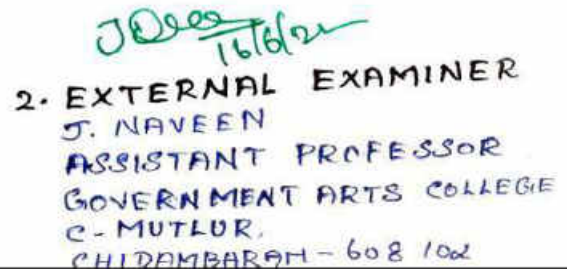 16/6/21
2. EXTERNAL EXAMINER
J. NAVEEN
ASSISTANT PROFESSOR
GOVERNMENT ARTS COLLEGE
C-MUTLUR.
CHIDAMBARAM - 608 102